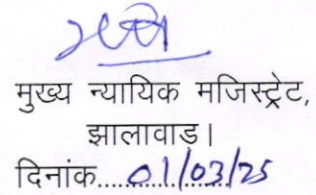 मुख्य न्यायिक मजिस्ट्रेट,
झालावाड़।
दिनांक....01/03/25